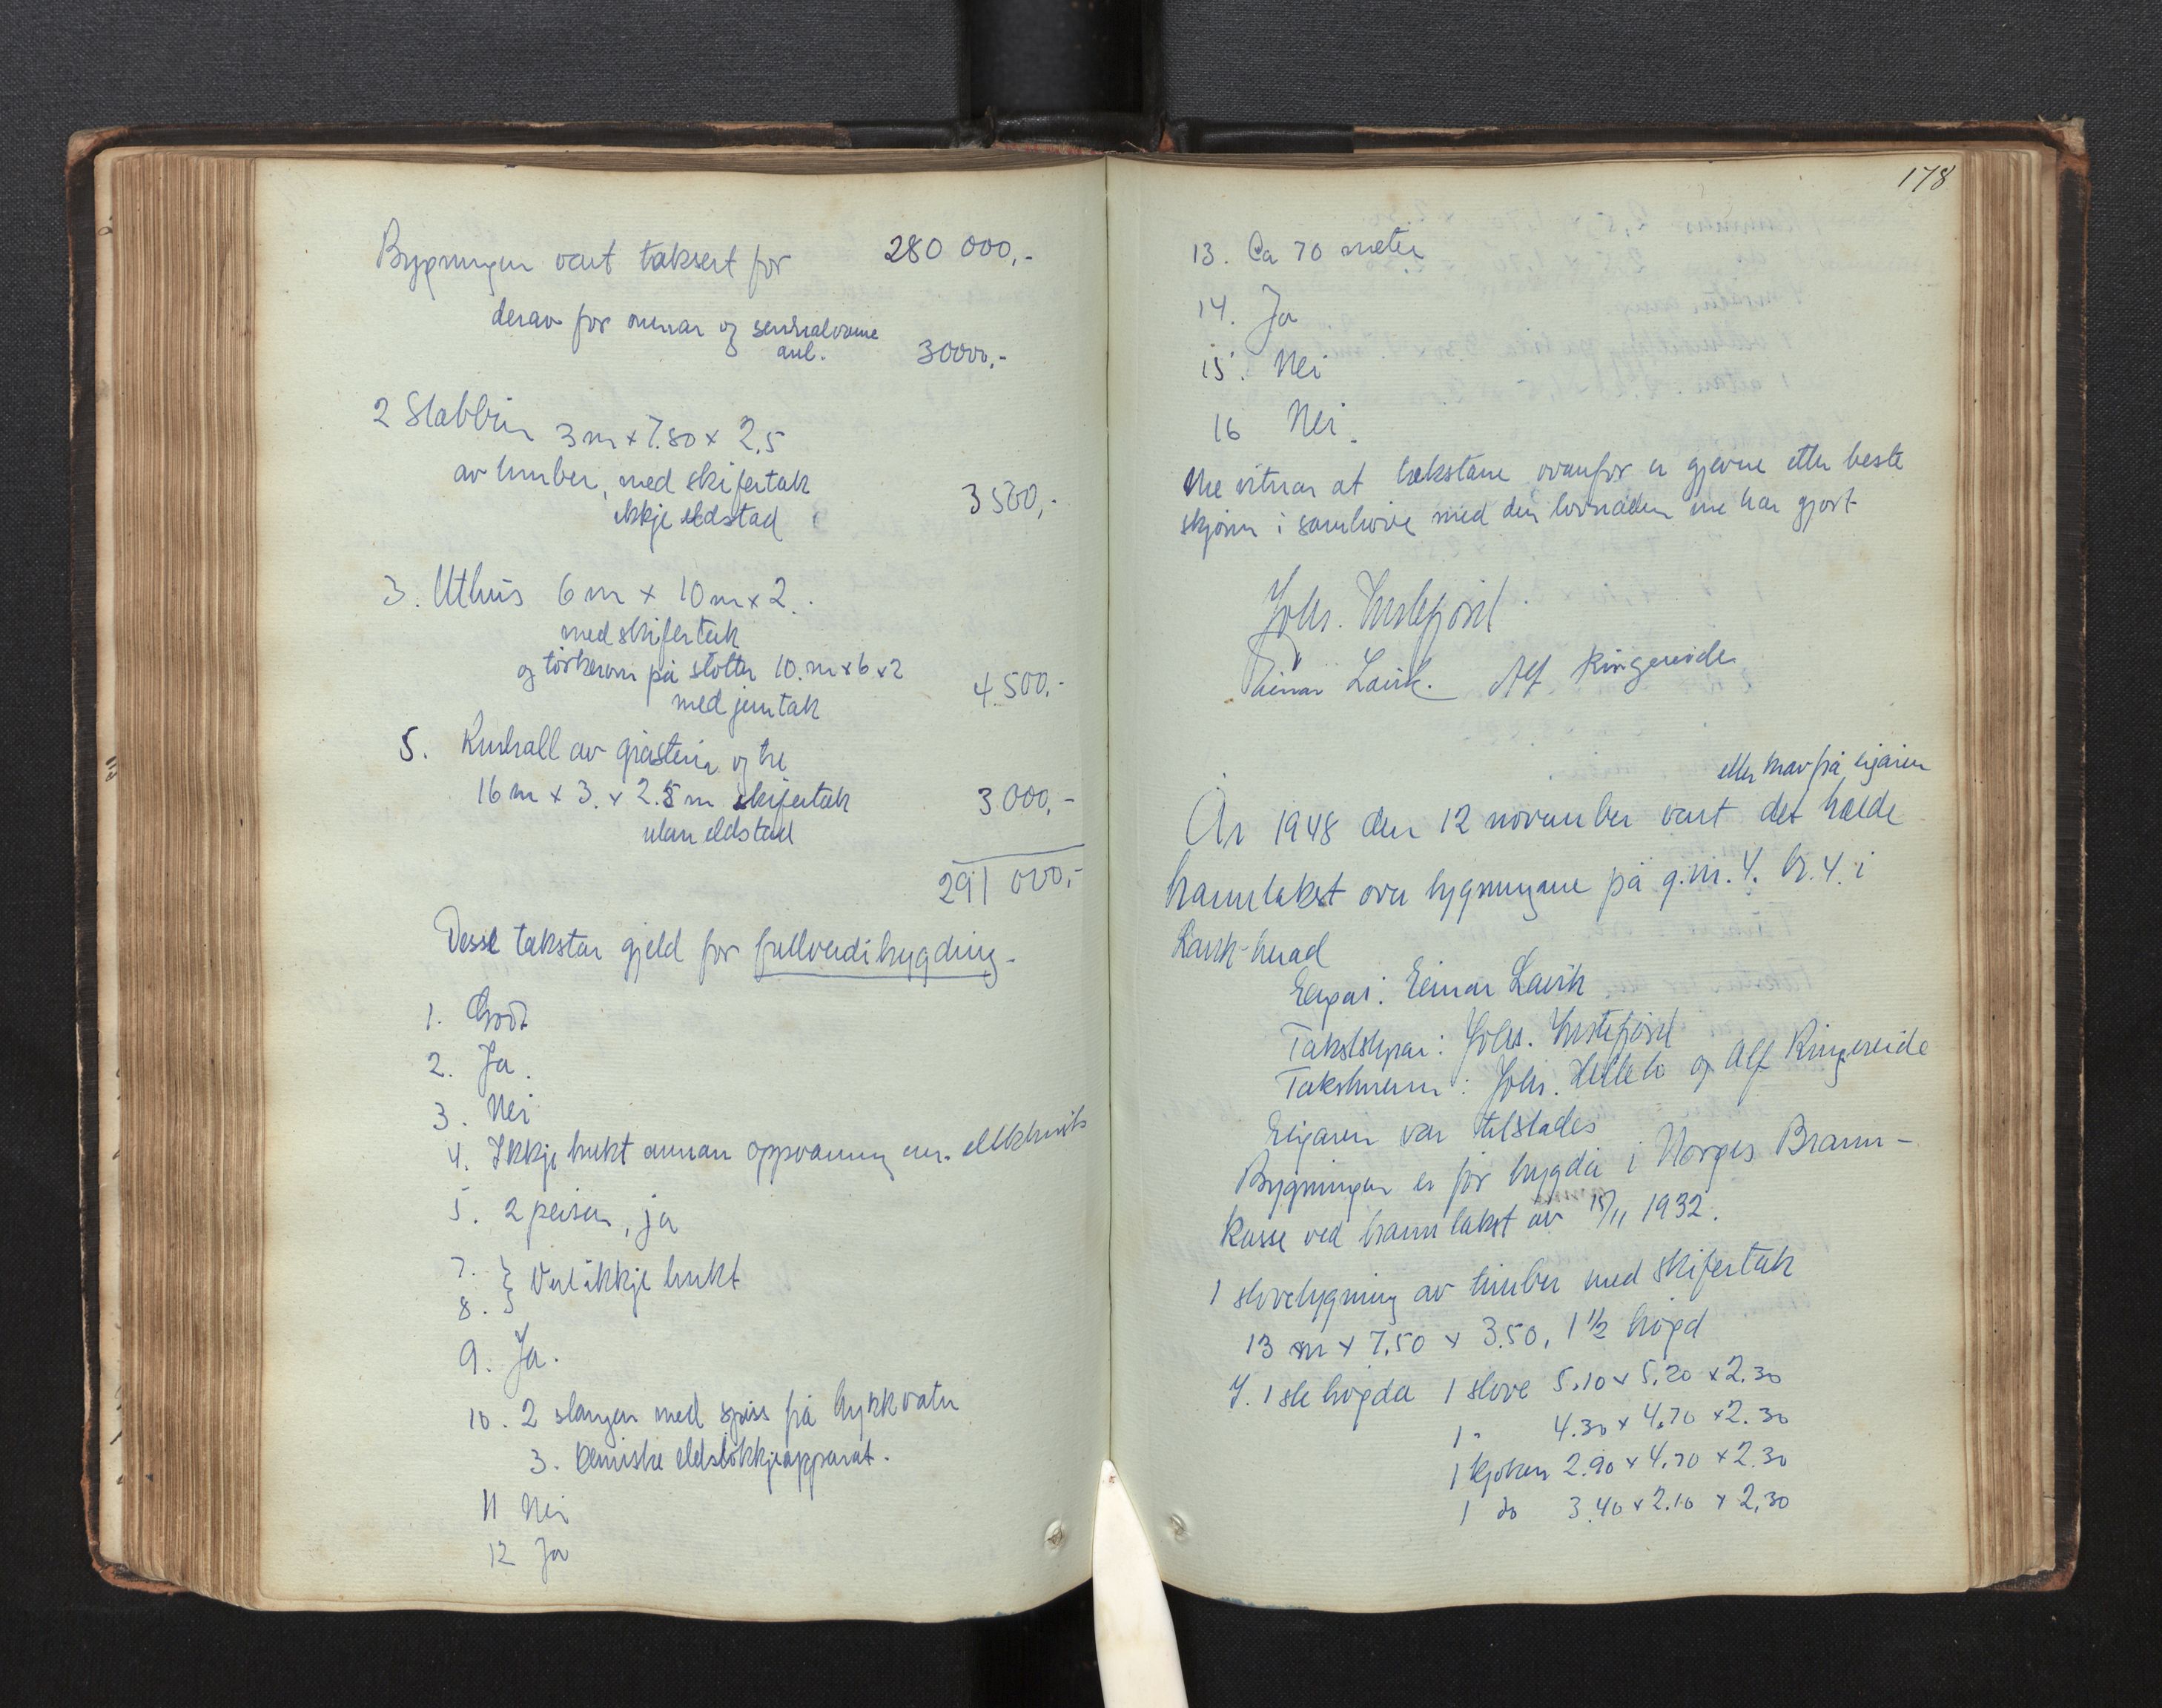 Bygningen vart taksert for 280 000,-
derav for omnar og sentralvarme
anl. 30000,-
2 Stabbur 3 m x 7.80 x 2,5
av timber, med skifertak
ikkje eldstad 3500,-
3. Uthus 6 m x 10 m x 2.
med skifertak
og törkerom på stolter 10. m x 6 x 2
med jerntak 4.500,-
5. Kuhall av gråstein og tre
16 m x 3. x 2.5 m skifertak 3 000,-
utan eldstad
291 000,-
Desse takstar gjeld for fullverdibygding.
1. Godt
2. Ja.
3. Nei
4. Ikkje brukt annan oppvarming enn elektrisk
5. 2 peisar, ja
7. } Vert ikkje brukt
8. }
9. Ja.
10. 2 slanger med spiss frå trykkvatn
3. kemiske eldslökkjeapparat.
11 Nei
12 Ja
178
13. Ca 70 meter
14. Ja
15. Nei
16 Nei.
Me vitnar at takstane ovanfor er gjevne etter beste
skjönn i samhöve med den lovnaden me har gjort
Johs.
Einar Lavik. Alf Ringereide
etter krav frå eigaren
År 1948 den 12 november vart det halde
branntakst over bygningane på g.nr. 4. br. 4. i
Lavik herad
Eigar: Einar Lavik
Takstskjönar: Johs.
Takstmenn: Johs. Helleto og Alf Ringereide
Eigaren var tilstades
Bygningen er för trygda i Norges Brann-
kasse ved branntakst av 15/11 1932.
1 stovebygning av timber med skifertak
13 m x 7,50 x 3.50, 1 1/2 högd
I. 1ste högda 1 stove 5.10 x 5.20 x 2.30
1 " 4.30 x 4.70 x 2.30
1 kjöken 2.90 x 4.70 x 2.30
1 do 3.40 x 2.10 x 2,30